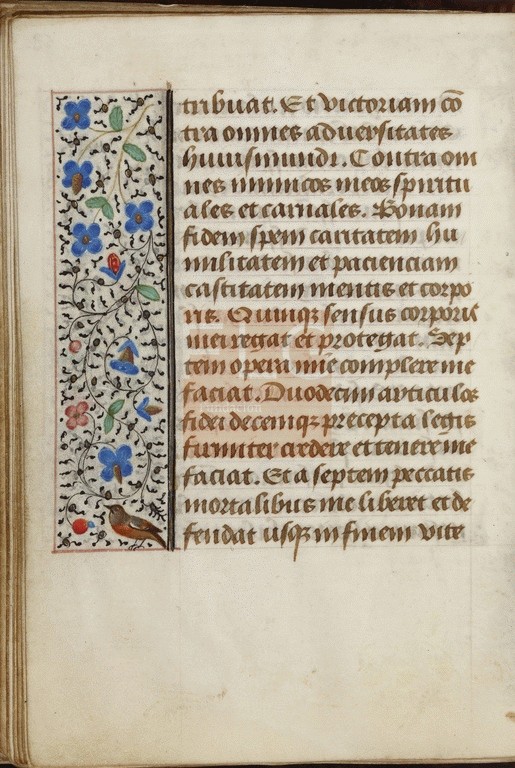 tribuat. Et victoriam cō
tra omnes aduersitates
huius mundi. Contra om
nes inimicos meos spiritu
ales et carnales. Bonam
fidem spem caritatem hu
militatem et pacienciam
castitatem mentis et corpo
ris. Quinqꝫ sensus corporis
mei regat et protegat. Sep
tem opera mīe complere me
faciat. Duodecim articulos
fidei decemqꝫ precepta legis
firmiter credere et tenere me
faciat. Et a septem peccatis
mortalibus me liberet et de
fendat usqꝫ in finem vite